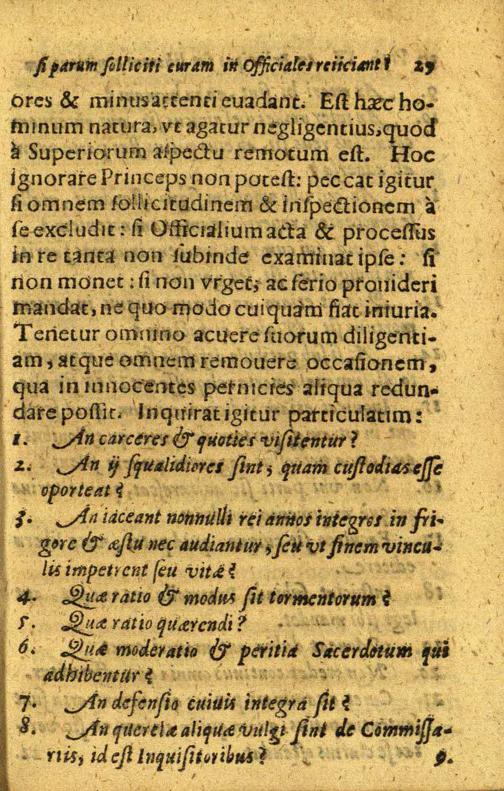 si parum solliciti curam in Officiales reiiciant? 29
ores & minus attenti euadant. Est hæc ho-
minum natura, vt agatur negligentius, quod
à Superiorum aspectu remotum est. Hoc
ignorare Princeps non potest: peccat igitur
si omnem sollicitudinem & inspectionem à
se excludit: si Officialium acta & processus
in re tanta non subinde examinat ipse: si
non monet: si non vrget, ac serio prouideri
mandat, ne quo modo cuiquam fiat iniuria.
Tenetur omnino acuere suorum diligenti-
am, atque omnem remouere occasionem,
qua in innocentes pernicies aliqua redun-
dare possit. Inquirat igitur particulatim:
1. An carceres & quoties visitentur?
2. An ij squalidiores sint, quam custodias esse
oporteat?
3. An iaceant nonnulli rei annos integros in fri-
gore & æstu nec audiantur, seu vt finem vincu-
lis impetrent seu vitæ?
4. Quæ ratio & modus sit tormentorum?
5. Quæ ratio quærendi?
6. Quæ moderatio & peritia Sacerdotum qui
adhibentur?
7. An defensio cuiuis integra sit?
8. An querelæ aliquæ vulgi sint de Commissa-
riis, id est Inquisitoribus? 9.